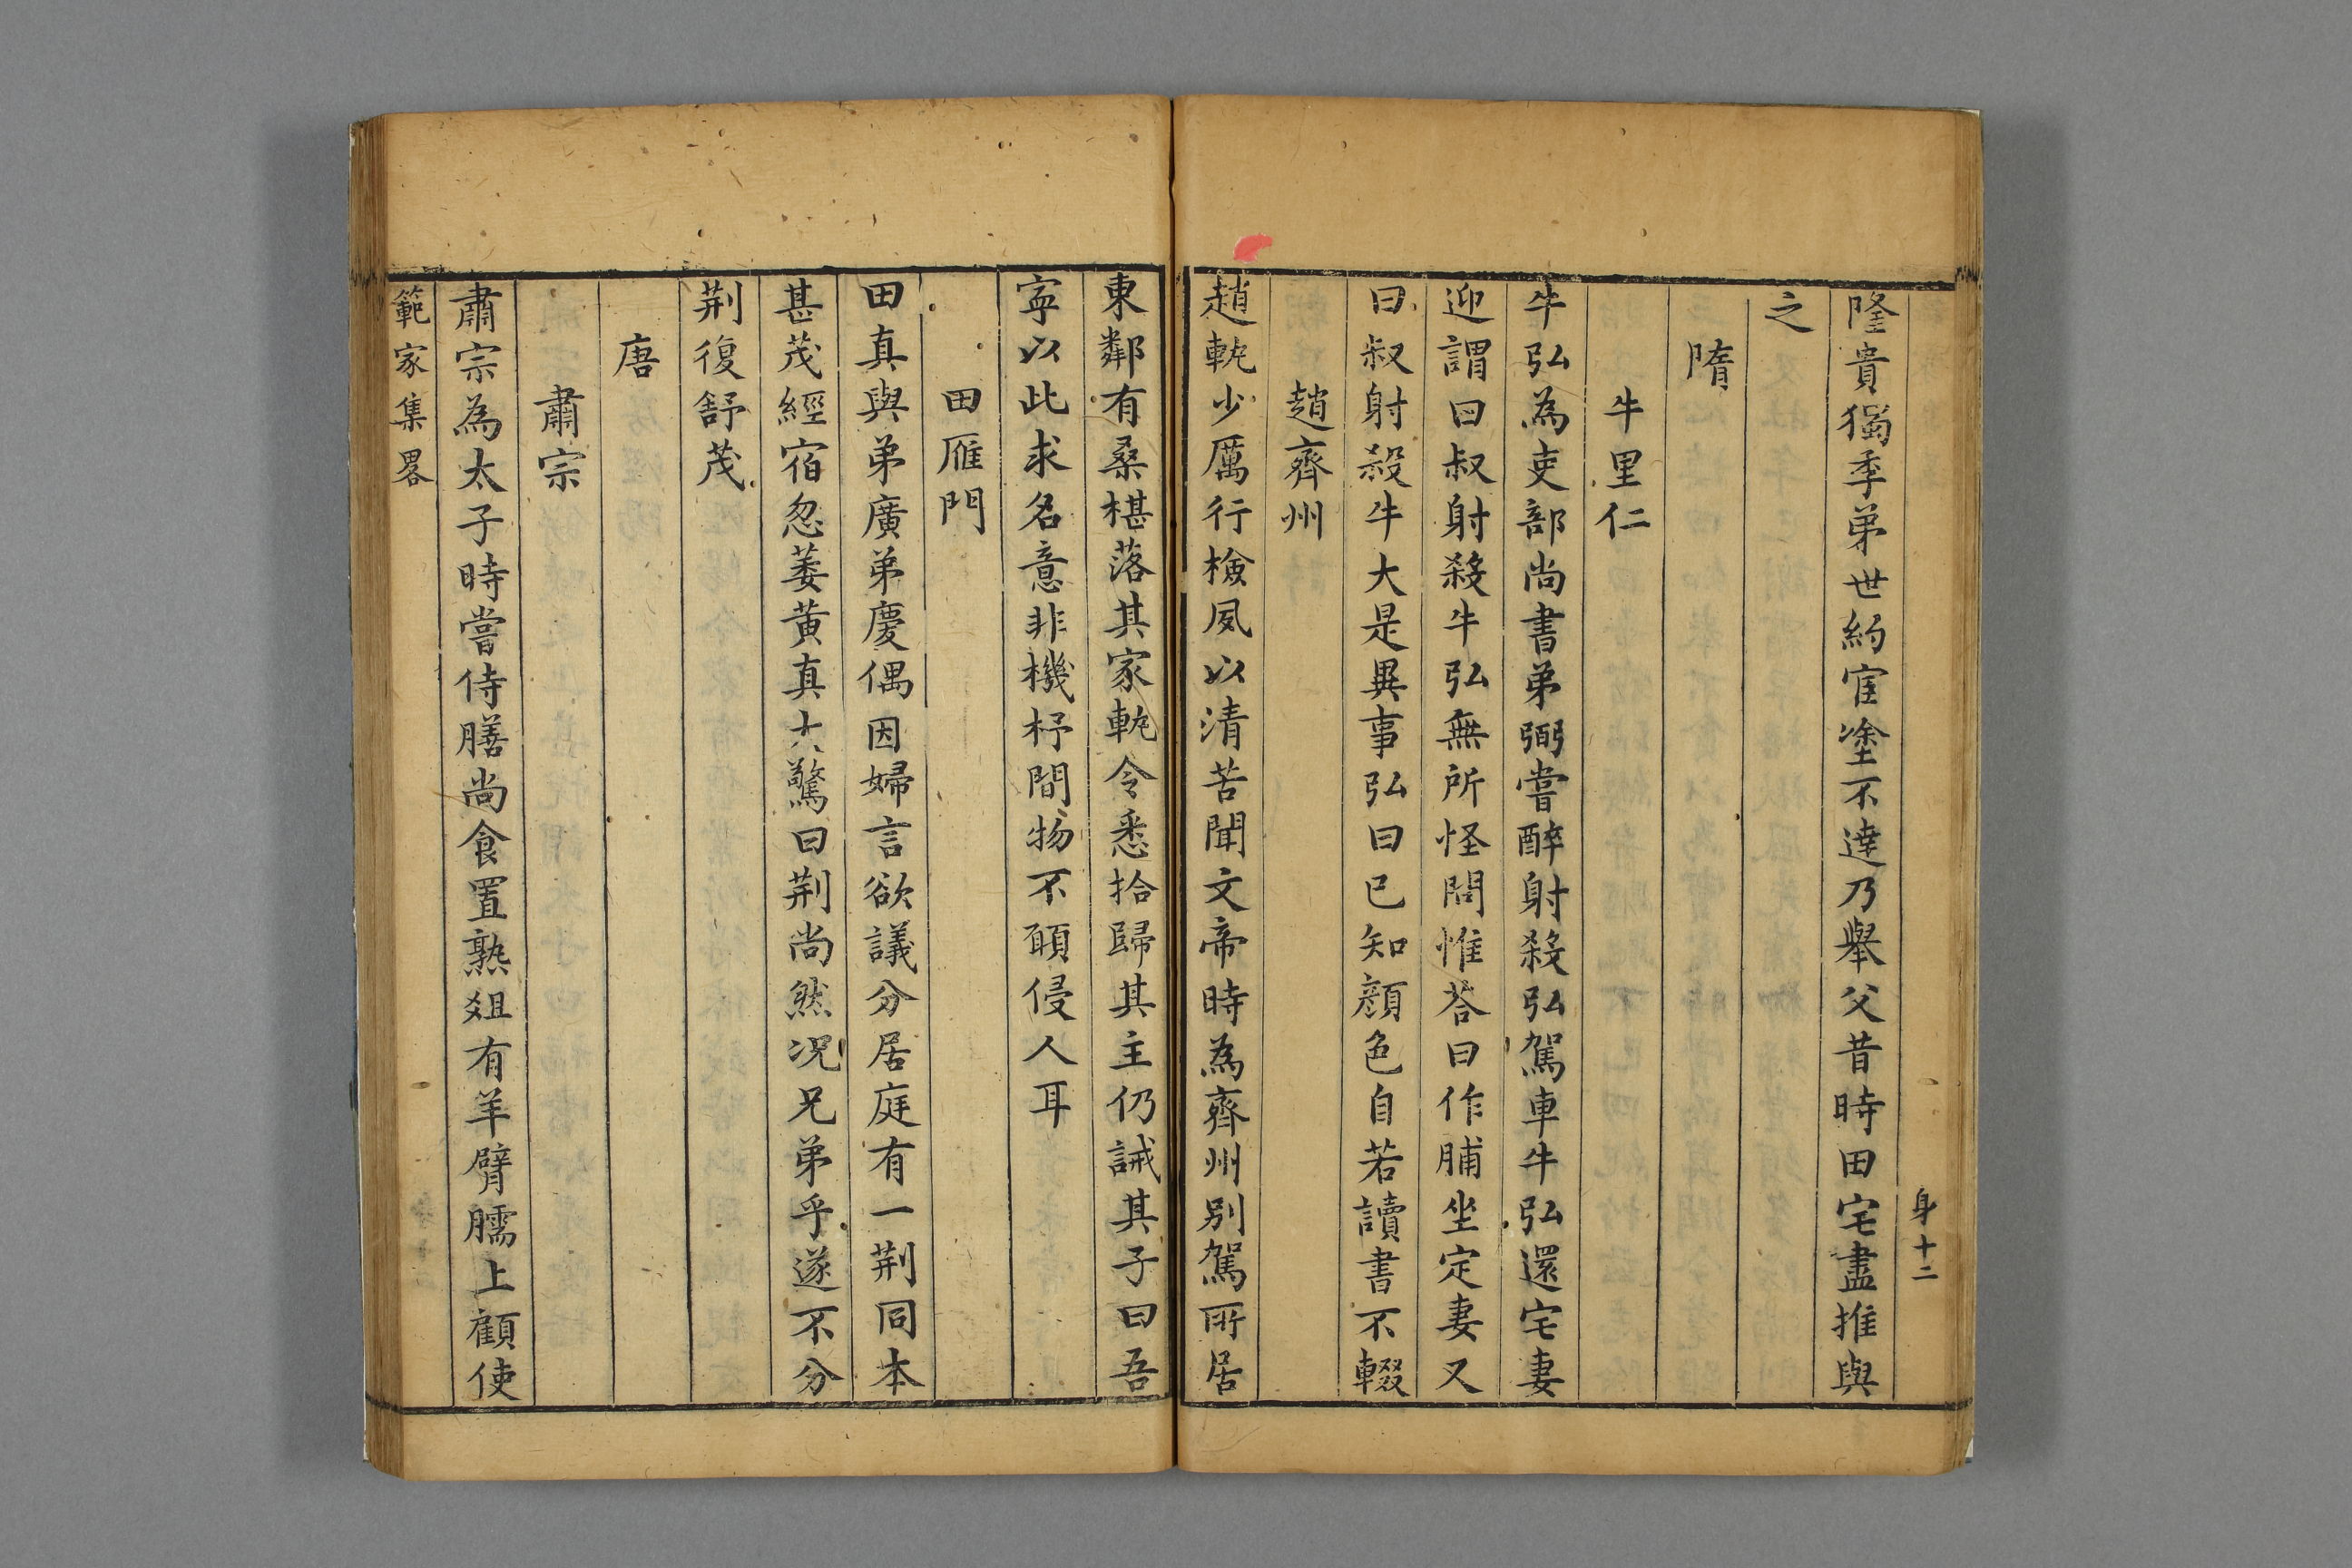 身十二
隆貴獨季弟世約宦塗不達乃舉父昔時田宅盡推與
之
隋
牛里仁
牛弘為吏部尚書弟弼嘗醉射殺弘駕車牛弘還宅妻
迎謂曰叔射殺牛弘無所怪問惟荅曰作脯坐定妻又
曰叔射殺牛大是異事弘曰已知顏色自若讀書不輟
趙齊州
趙軌少厲行檢夙以清苦聞文帝時為齊州別駕所居
東鄰有桑椹落其家軌令悉拾歸其主仍誡其子曰吾
寜以此求名意非機杼間物不願侵人耳
田雁門
田真與弟廣弟慶偶因婦言欲議分居庭有一荆同本
甚茂經宿忽萎黄真大驚曰荆尚然况兄弟乎遂不分
荆復舒茂
唐
肅宗
肅宗為太子時嘗侍膳尚食置熟俎有羊臂臑上顧使
範家集畧